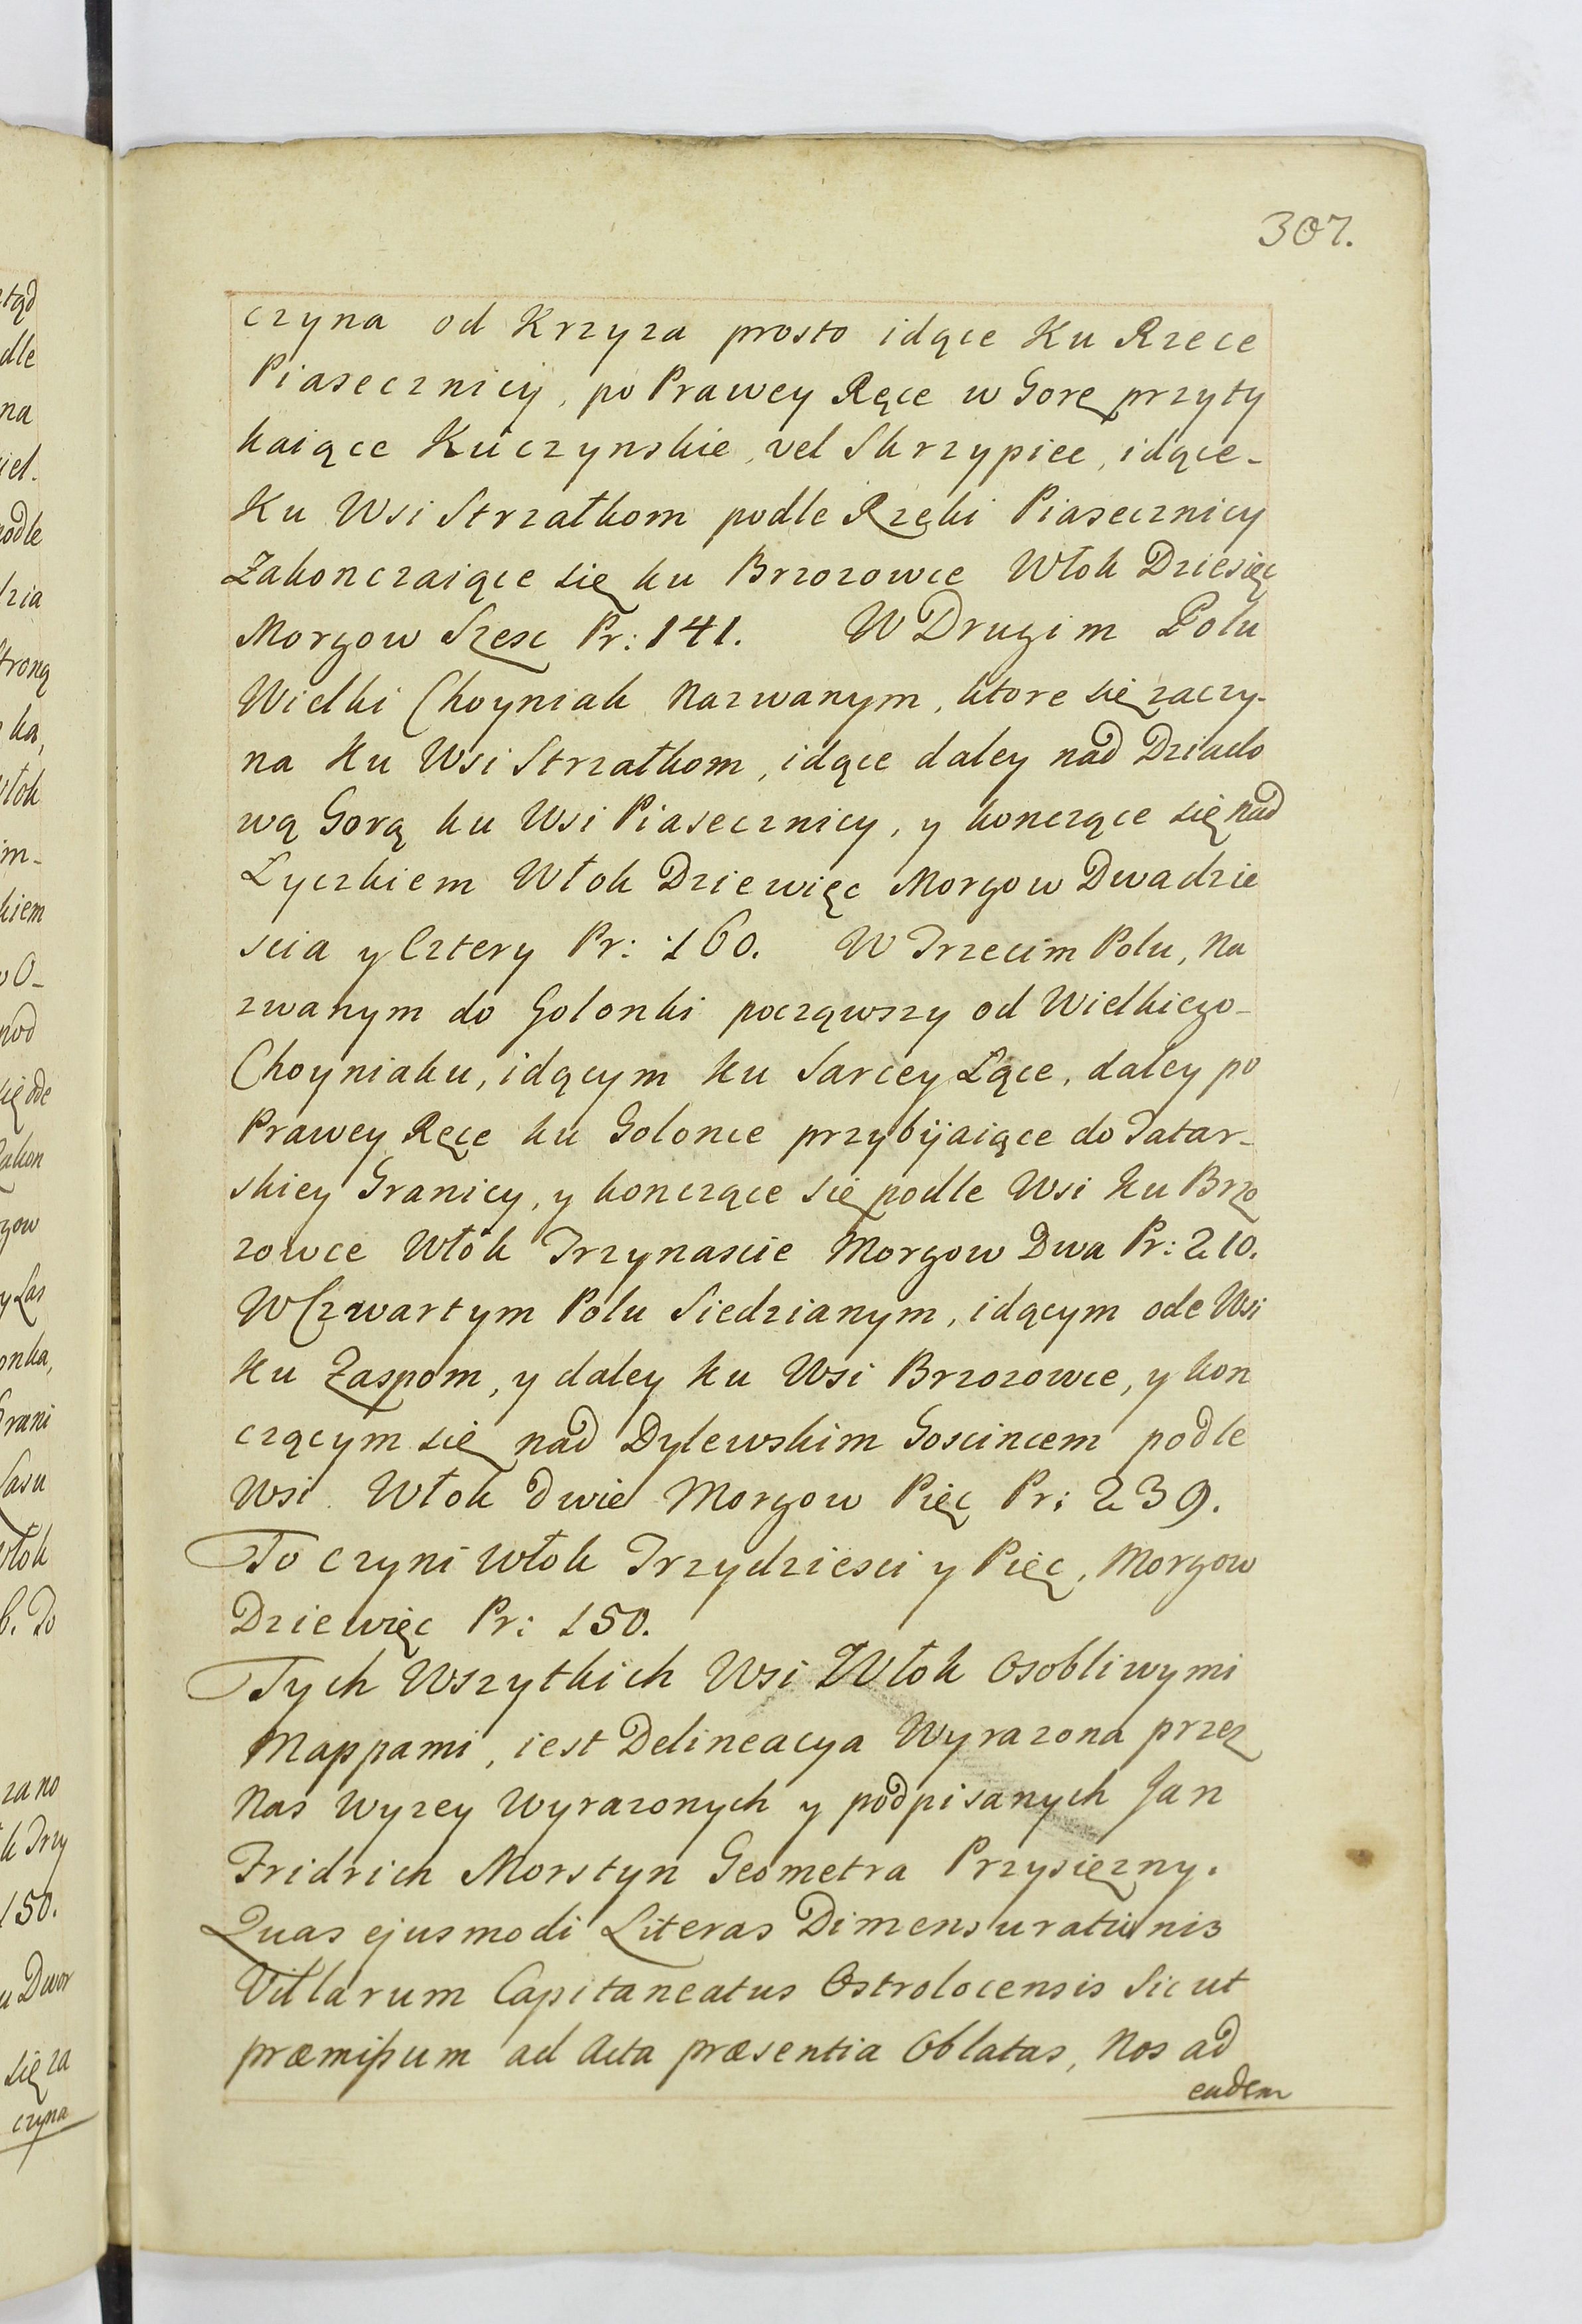 307.
czyna od Krzyza prosto idące Ku Rzece
Piasecznicy, po Prawey Ręce w Gorę przyty
kaiące Kuczynskie, vel Skrzypiec, idące-
Ku Wsi Strzałkom podle Rzeki Piasecznicy
Zakonczaiące się ku Brzozowce Włok Dziesięc
Morgow Szesc Pr: 141. W Drugim Polu
Wielki Choyniak Nazwanym, ktore się zaczy-
na Ku Wsi Strzałkom, idące daley nad Dziado
wą Gorą ku Wsi Piasecznicy, y konczące się nad
Łyczkiem Włok Dziewięc Morgow Dwadzie
scia y Cztery Pr: 160. W Trzecim Polu, Na
zwanym do Golonki począwszy od Wielkiego-
Choyniaku, idącym ku Sarcey Łące, daley po
Prawey Ręce ku Golonce przybijaiące do Tatar-
skiey Granicy, y konczące się podle Wsi Ku Brzo
zowce Włok Trzynascie Morgow Dwa Pr: 210.
W Czwartym Polu Siedzianym, idącym ode Wsi
Ku Zaspom, y daley Ku Wsi Brzozowce, y kon
czącym się nad Dylewskim Goscincem podle
Wsi. Włok Dwie Morgow Pięc Pr: 239.
To czyni Włok Trzydziesci y Pięc, Morgow
Dziewięc Pr: 150.
Tych Wszytkich Wsi Włok Osobliwymi
Mappami, iest Delineacya Wyrazona przez
Nas Wyzey Wyrazonych y podpisanych Jan
Fridrich Morstyn Geometra Przysięzny.
Quas ejusmodi Literas Dimensurationis
Villarum Capitaneatus Ostrolocensis Sicut
præmißum ad Acta præsentia Oblatas, Nos ad
eadem
czyna